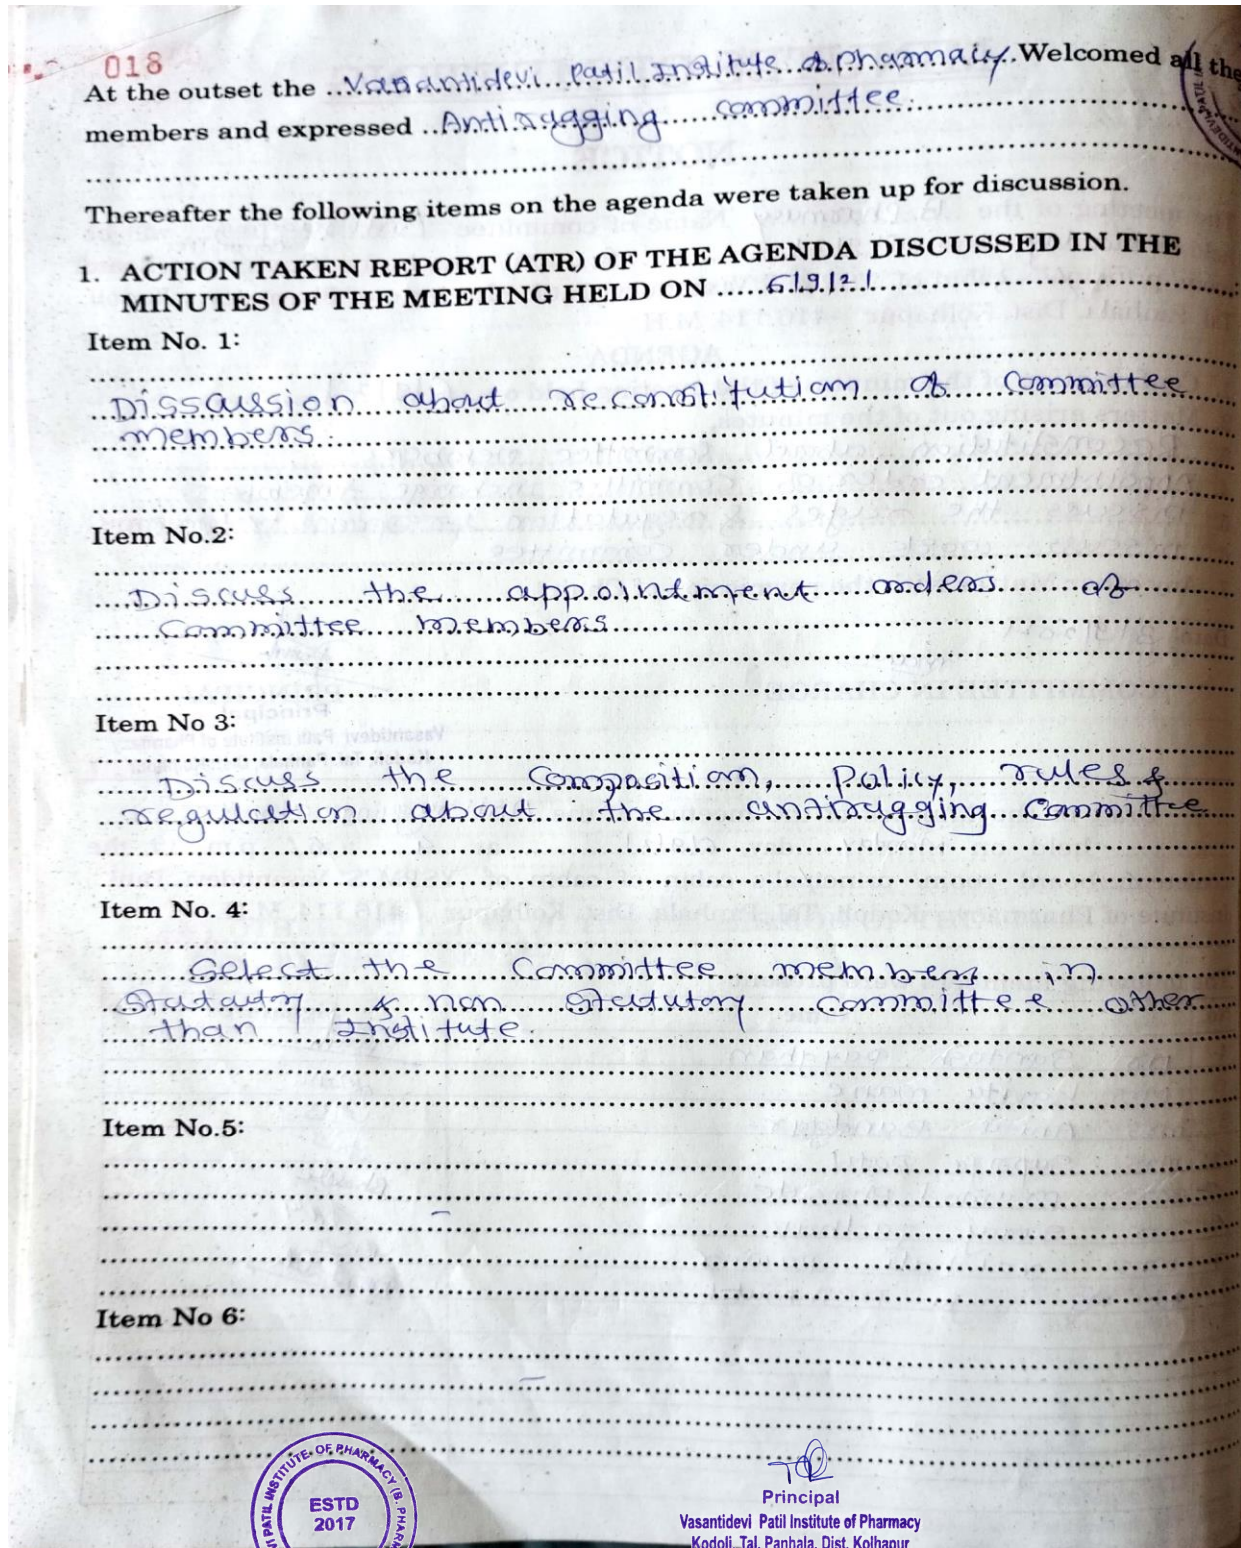 018
At the outset the ..Vasantidevi Patil Institute of pharmacy. Welcomed all the
members and expressed ..Antiragging committee.
Thereafter the following items on the agenda were taken up for discussion.
1. ACTION TAKEN REPORT (ATR) OF THE AGENDA DISCUSSED IN THE
MINUTES OF THE MEETING HELD ON .....6/9/21
Item No. 1:
Disscussion about reconstitution of committee
members.
Item No.2:
Discuss the appointment orders of
Committee members
Item No 3:
Discuss the Composition, Policy, rules &
regulation about the antiragging Committee
Item No. 4:
Select the Committee members in
Statutory & non Statutory committee other
than Institute.
Item No.5:
–
Item No 6:
–
VI PATIL INSTITUTE OF PHARMACY (B. PHARM
ESTD
2017
Principal
Vasantidevi Patil Institute of Pharmacy
Kodoli, Tal. Panhala, Dist. Kolhapur